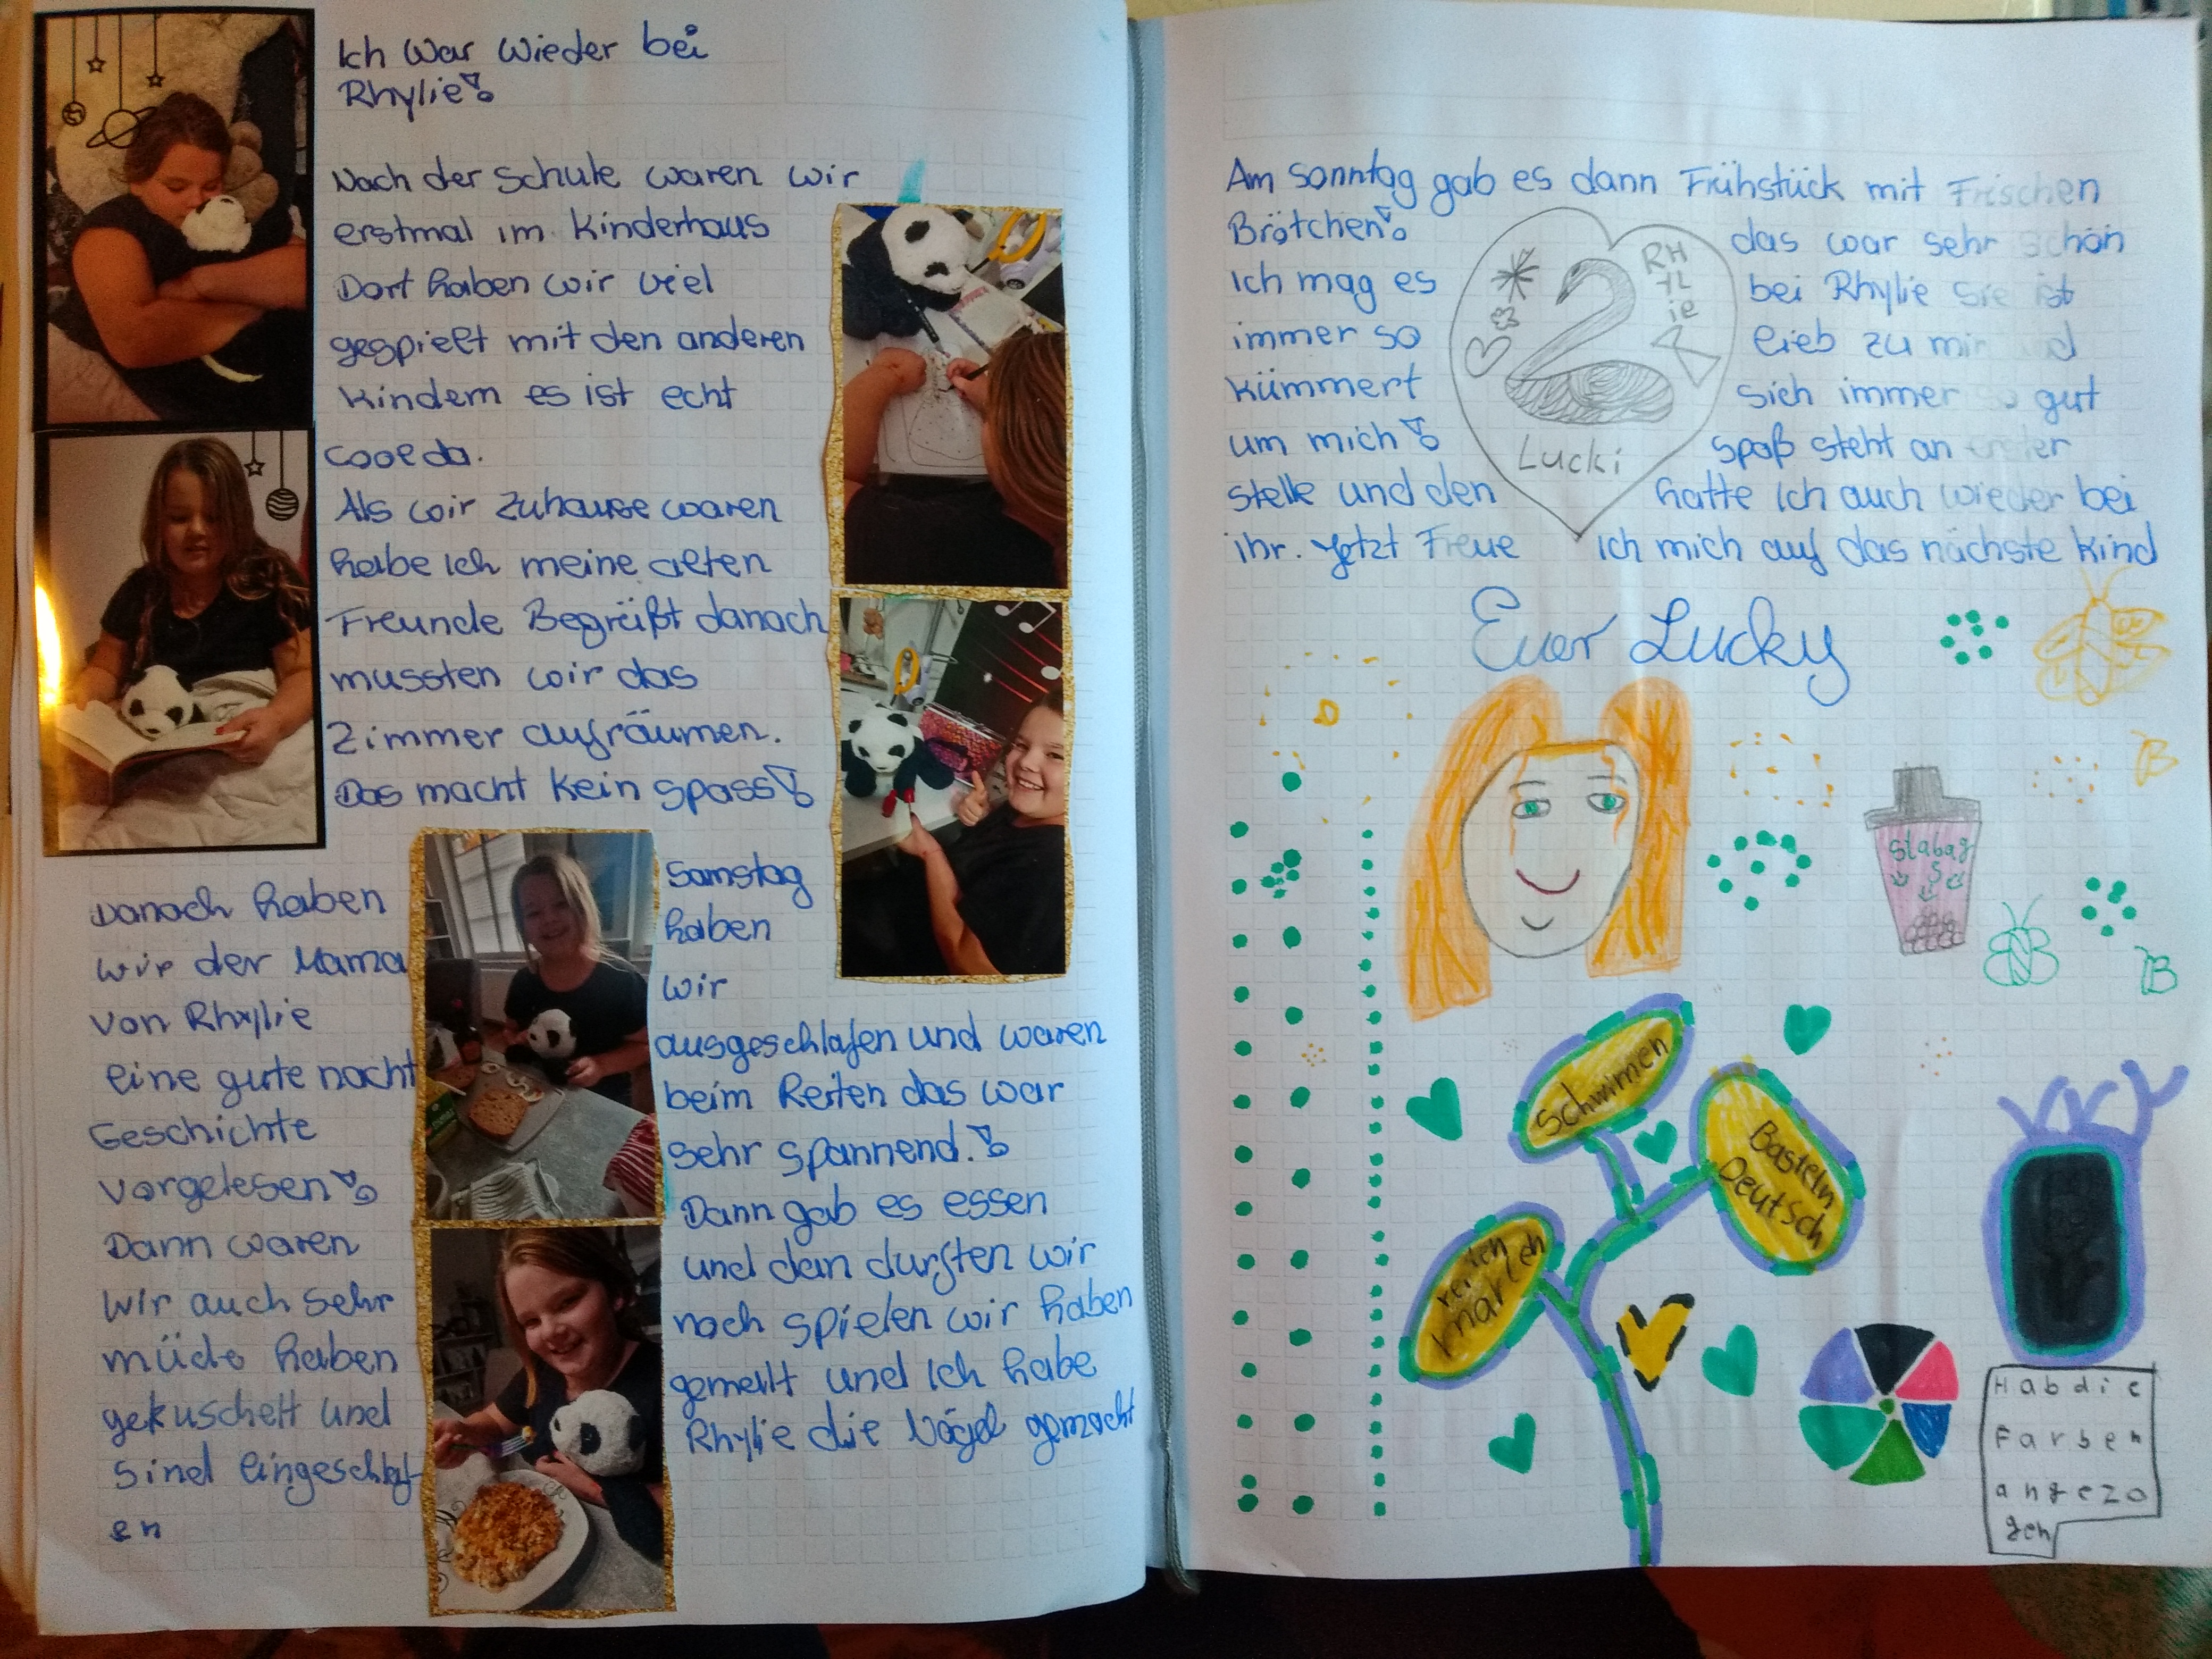 Ich War Wieder bei
Rhylie!
Nach der Schule waren wir
erstmal im Kinderhaus
Dort haben wir viel
gespielt mit den anderen
Kindern es ist echt
cool da.
Als wir Zuhause waren
habe ich meine alten
Freunde Begrüßt danach
mussten wir das
Zimmer aufräumen.
Das macht kein Spass!
Danach haben
wir der Mama
von Rhylie
eine gute nacht
Geschichte
vorgelesen!
Dann waren
wir auch sehr
müde haben
gekuschelt und
sind eingeschlaf
en
Samstag
haben
wir
ausgeschlafen und waren
beim Reiten das war
sehr spannend.!
Dann gab es essen
und dan durften wir
noch spielen wir haben
gemalt und ich habe
Rhylie die Vögel gemacht
Am Sonntag gab es dann Frühstück mit Frischen
Brötchen! das war sehr schön
Ich mag es bei Rhylie Sie ist
immer so lieb zu mir und
kümmert sich immer so gut
um mich! Spaß steht an erster
stelle und den hatte ich auch wieder bei
ihr. Jetzt Freue ich mich auf das nächste Kind
RH
YL
ie
Lucki
Euer Lucky
Slabag
S
Schwimmen
Basteln
Deutsch
reiten
Hab die
Farben
angezo
gen